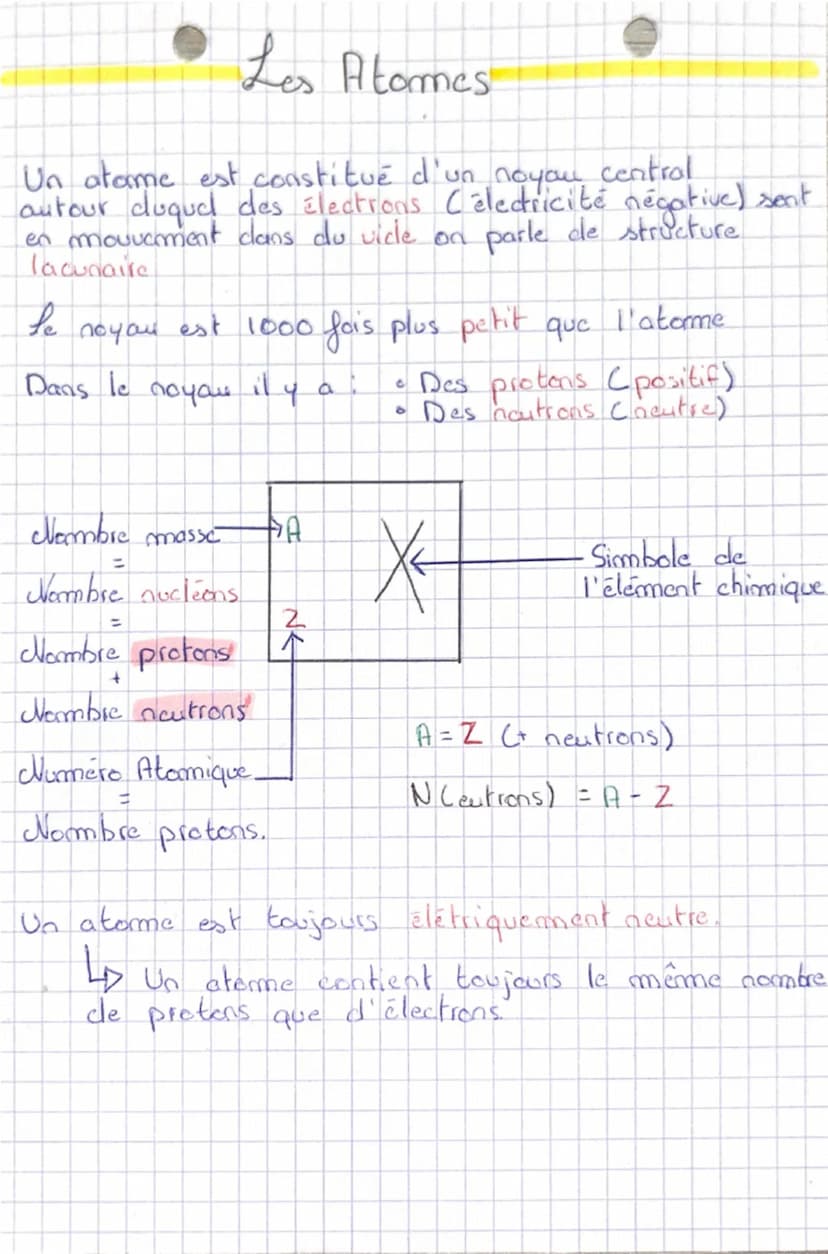 Les Atomes
Un atome est constitué d'un noyau central
autour duquel des électrons (électricité négative) sont
en mouvement dans du vide on parle de structure
lacunaire
Le noyau est 1000 fois plus petit que l'atome
Dans le noyau il y a : • Des protons (positif)
• Des neutrons (neutre)
Nombre masse
A
X
Simbole de
l'élément chimique
=
Nombre nucléons
=
Z
Nombre protons
+
Nombre neutrons
A = Z (+ neutrons)
Numéro Atomique
N (eutrons) = A - Z
=
Nombre protons.
Un atome est toujours élétriquement neutre.
↳ Un atome contient toujours le même nombre
de protons que d'électrons.